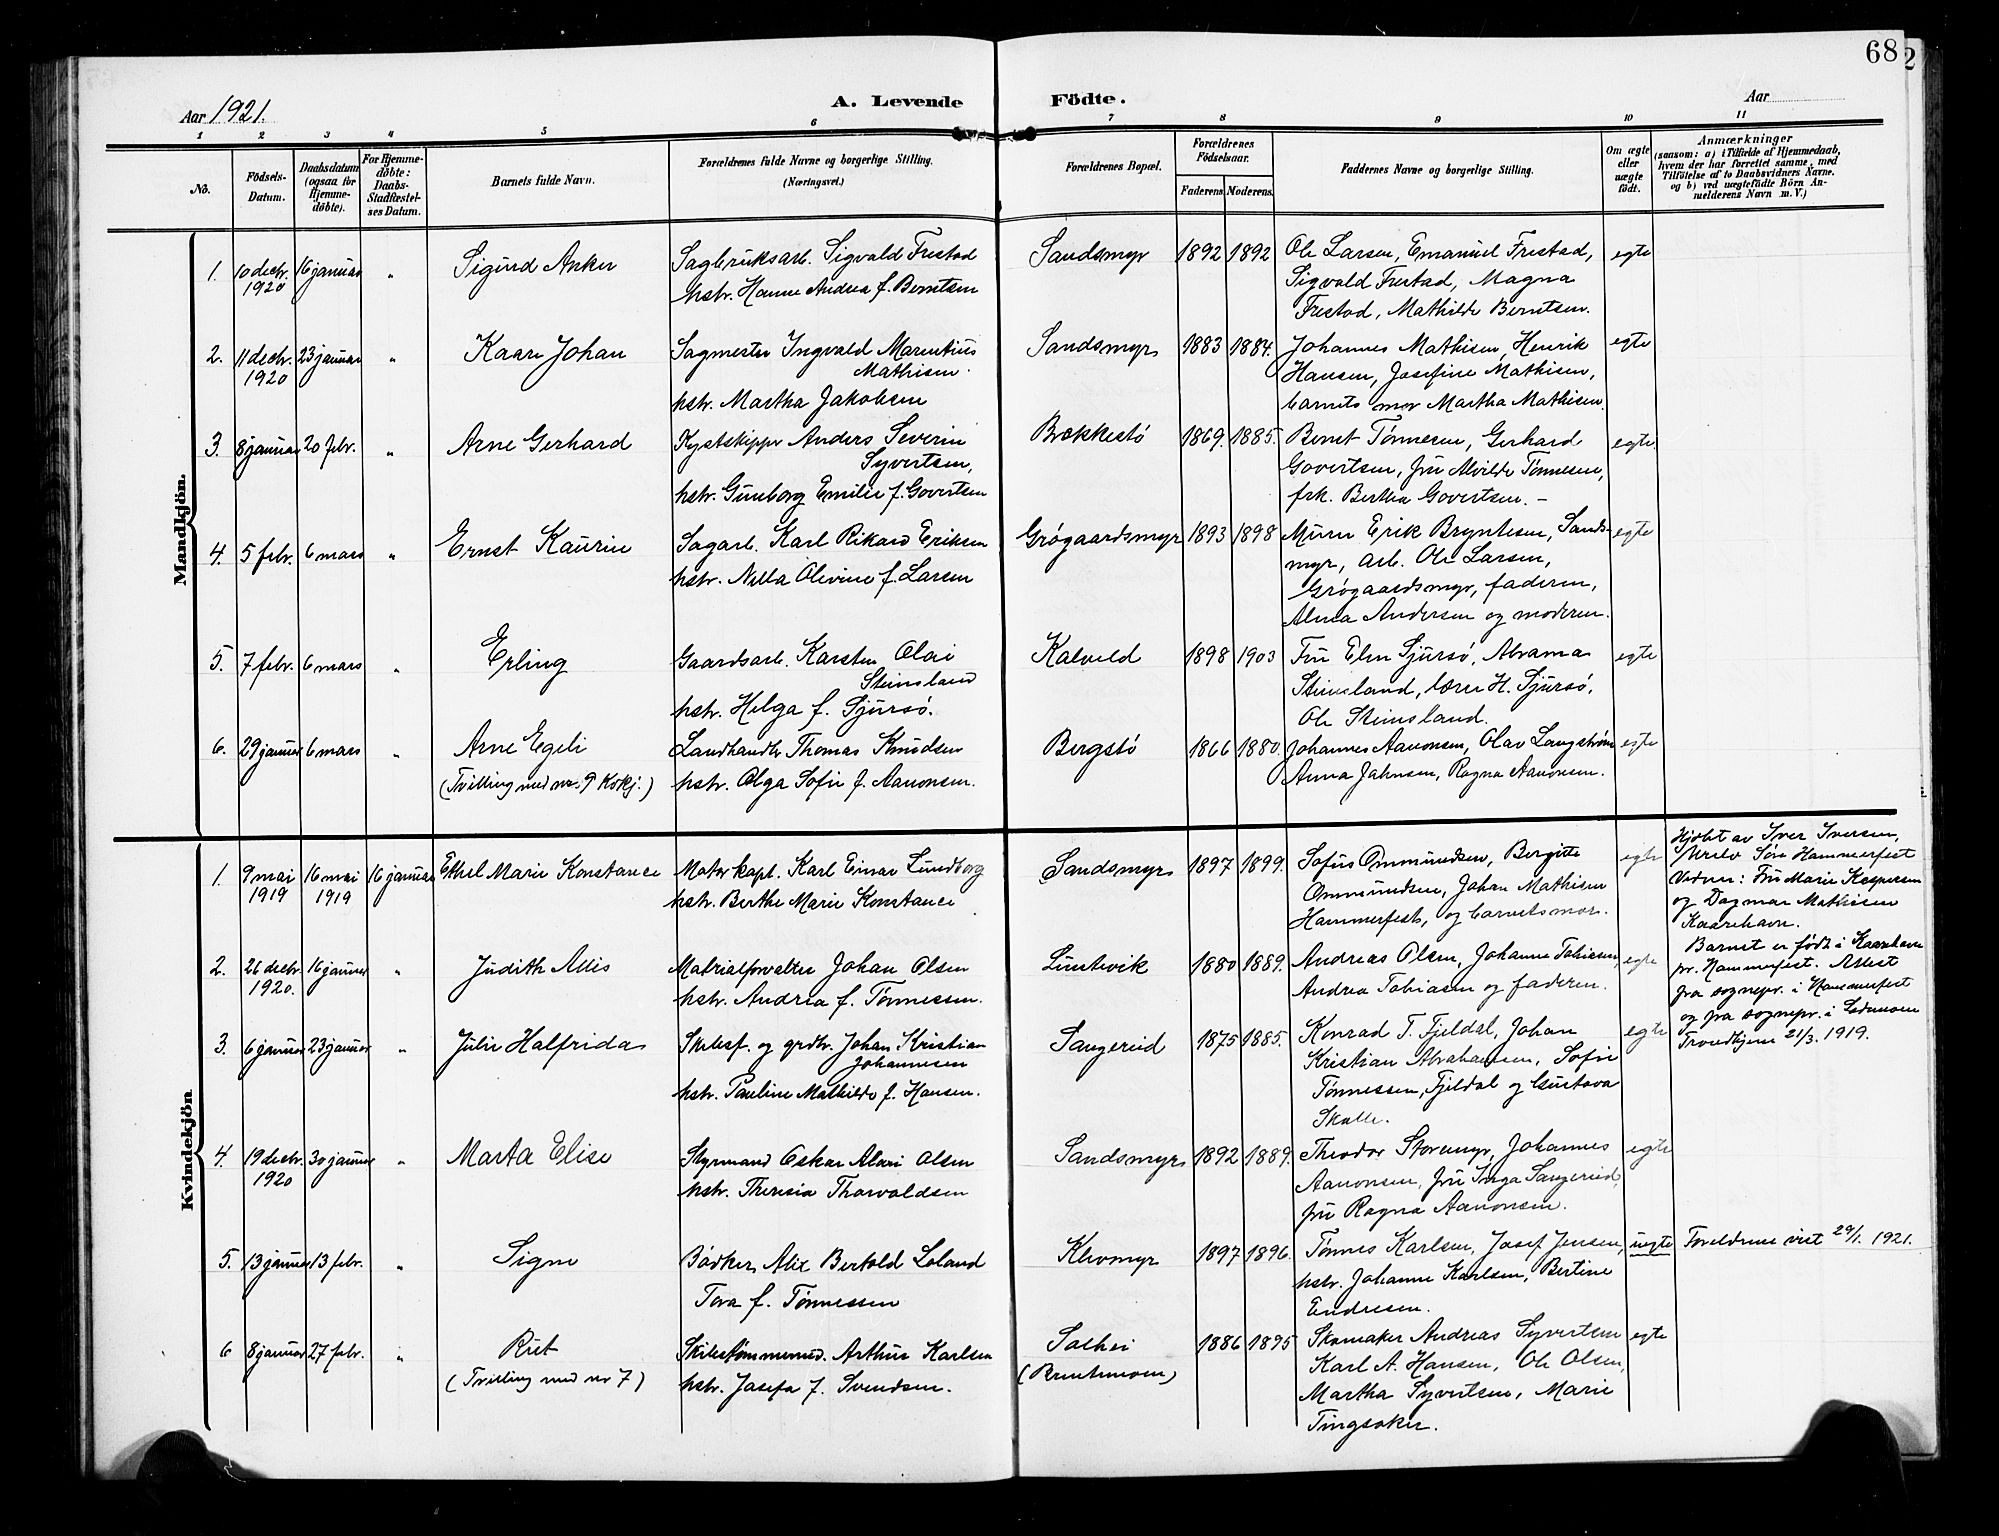 68
Aar 1921.
A. Levende Födte.
Aar
1 2 3 4 5 6 7 8 9 10 11
No.
Födsels-Datum.
Daabsdatum (ogsaa for Hjemme-döbte).
For Hjemme-döbte: Daabs-Stadfæstel-ses Datum.
Barnets fulde Navn.
Forældrenes fulde Navne og borgerlige Stilling.
(Næringsvei.)
Forældrenes Bopæl.
Forældrenes Födselsaar.
Faderens. Moderens.
Faddernes Navne og borgerlige Stilling.
Om ægte eller uægte födt.
Anmærkninger
(saasom: a) i Tilfælde af Hjemmedaab, hvem der har forrettet samme, med Tilföielse af to Daabsvidners Navne. og b) ved uægtefödte Börn An-melderens Navn m. V.)
Mandkjön.
1. 10 decbr. 1920 16 januar " Sigurd Anker
Sagbruksarb. Sigvald Frestad
hstr. Hanne Andrea f. Berntsen
Sandsmyr 1892 1892
Ole Larsen, Emanuel Frestad,
Sigvald Frestad, Magna
Frestad, Mathilde Berntsen.
egte
2. 11 decbr. 1920 23 januar " Kaare Johan
Sagmester Ingvald Marentius
Mathisen.
hstr. Martha Jakobsen
Sandsmyr 1883 1884.
Johannes Mathisen, Henrik
Hansen, Josefine Mathisen,
barnets mor Martha Mathisen.
egte
3. 8 januar 20 febr. " Arne Gerhard
Kystskippr Anders Severin
Syvertsen,
hstr. Gunborg Emilie f. Govertsen
Brekkestö 1869. 1885.
Bernt Tønnesen, Gerhard
Govertsen, fru Alvilde Tønnesen,
frk. Bertha Govertsen. –
egte.
4. 5 febr. 6 mars " Ernst Kaurin
Sagarb. Karl Rikard Eriksen
hstr. Nilla Olivine f. Larsen
Grøgaardsmyr 1893 1898
Murer Erik Bryntesen, Sands-
myr, arb. Ole Larsen,
Grøgaardsmyr, faderen,
Alma Andersen og moderen.
egte
5. 7 febr. 6 mars " Erling
Gaardsarb. Karsten Olai
Steinsland
hstr. Helga f. Sjursø.
Kalveld 1898 1903
Fru Elen Sjursø, Abrama
Steinsland, lærer H. Sjursø,
Ole Steinsland.
egte
6. 29 januar 6 mars " Arne Egeli
(Tvilling med nr. 9 Kvkj.)
Landhandlr Thomas Knudsen
hstr. Olga Sofie f. Aanonsen.
Bergstø 1866 1880.
Johannes Aanonsen, Olav Langstrøm
Anna Jahnsen, Ragna Aanonsen.
egte
Kvindekjön
1. 9 mai 1919 16 mai 1919 16 januar Ethel Marie Konstance
Motorkapt. Karl Einar Lundborg
hstr. Berthe Marie Konstance
Sandsmyr 1897 1899.
Sofus Ommundsen, Bergitte
Ommundsen, Johan Mathisen
Hammerfest, og barnets mor.
egte
Hjdbt av Iver Iversen,
Søre Hammerfest
Vidner: Fru Marie Kaspersen
og Dagmar Mathisen
Kaarehavn.
Barnet er født i Kaarehavn
pr. Hammerfest. Attest
fra sognepr. i Hammerfest
og fra sognepr. i Lademoen
Trondhjem 21/3. 1919.
2. 26 decbr. 1920. 16 januar " Judith Alis
Matrialforvalter Johan Olsen
hstr. Andrea f. Tønnessen.
Luntevik 1880 1889.
Andreas Olsen, Johanne Tobiasen,
Andrea Tobiasen og faderen.
egte
3. 6 januar 23 januar " Julie Halfrida
Skibsf. og grdbr. Johan Kristian
Johannesen
hstr. Pauline Mathilde f. Hansen.
Sangereid 1875 1885.
Konrad T. Fjeldal, Johan
Kristian Abrahamsen, Sofie
Tønnessen, Fjeldal og Gustava
Skalle.
egte
4. 19 decbr. 1920 30 januar " Marta Elise
Styrmand Oskar Alari Olsen
hstr. Theresia Thorvaldsen
Sandsmyr 1892 1889.
Theodor Storemyr, Johannes
Aanonsen, fru Inga Sangereid,
fru Ragna Aanonsen.
egte
5. 13 januar 13 febr. " Signe
Bödker Alix Bertold Loland
Tora f. Tønnessen
Klevmyr 1897 1896.
Tønnes Karlsen, Josef Jensen,
hstr. Johanne Karlsen, Bertine
Endresen.
uegte
Foreldrene viet 29/1. 1921.
6 8 januar 27 febr. " Rut
(Tvilling med nr 7)
Skibstømmermd. Arthur Karlsen
hstr. Josefa f. Svendsen.
Solhei 1886 1895
(Bruntmoen)
Skomaker Andreas Syvertsen
Karl A. Hansen, Ole Olsen,
Martha Syvertsen, Marie
Tingsaker.
egte